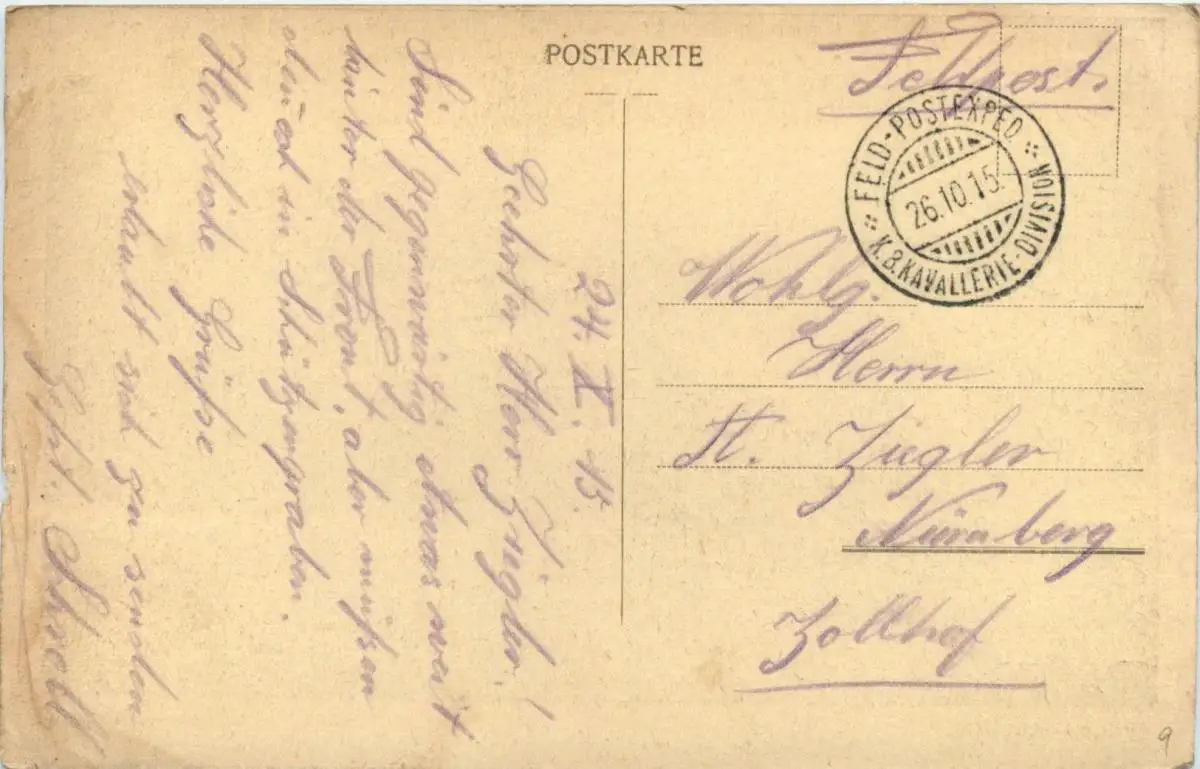 POSTKARTE
Feldpost.
FELD-POSTEXPED
26.10.15.
K.B.KAVALLERIE-DIVISION
Wohlg.
Herrn
St. Ziegler
Nürnberg
Zollhof
24. X. 15.
Geehrter Herr Ziegler!
Sind gegenwärtig etwas weit
hinter der Front, aber müssen
in Schützengraben.
Herzliche Grüße
erlaubt sich zu senden
Gefr. Scholl
9